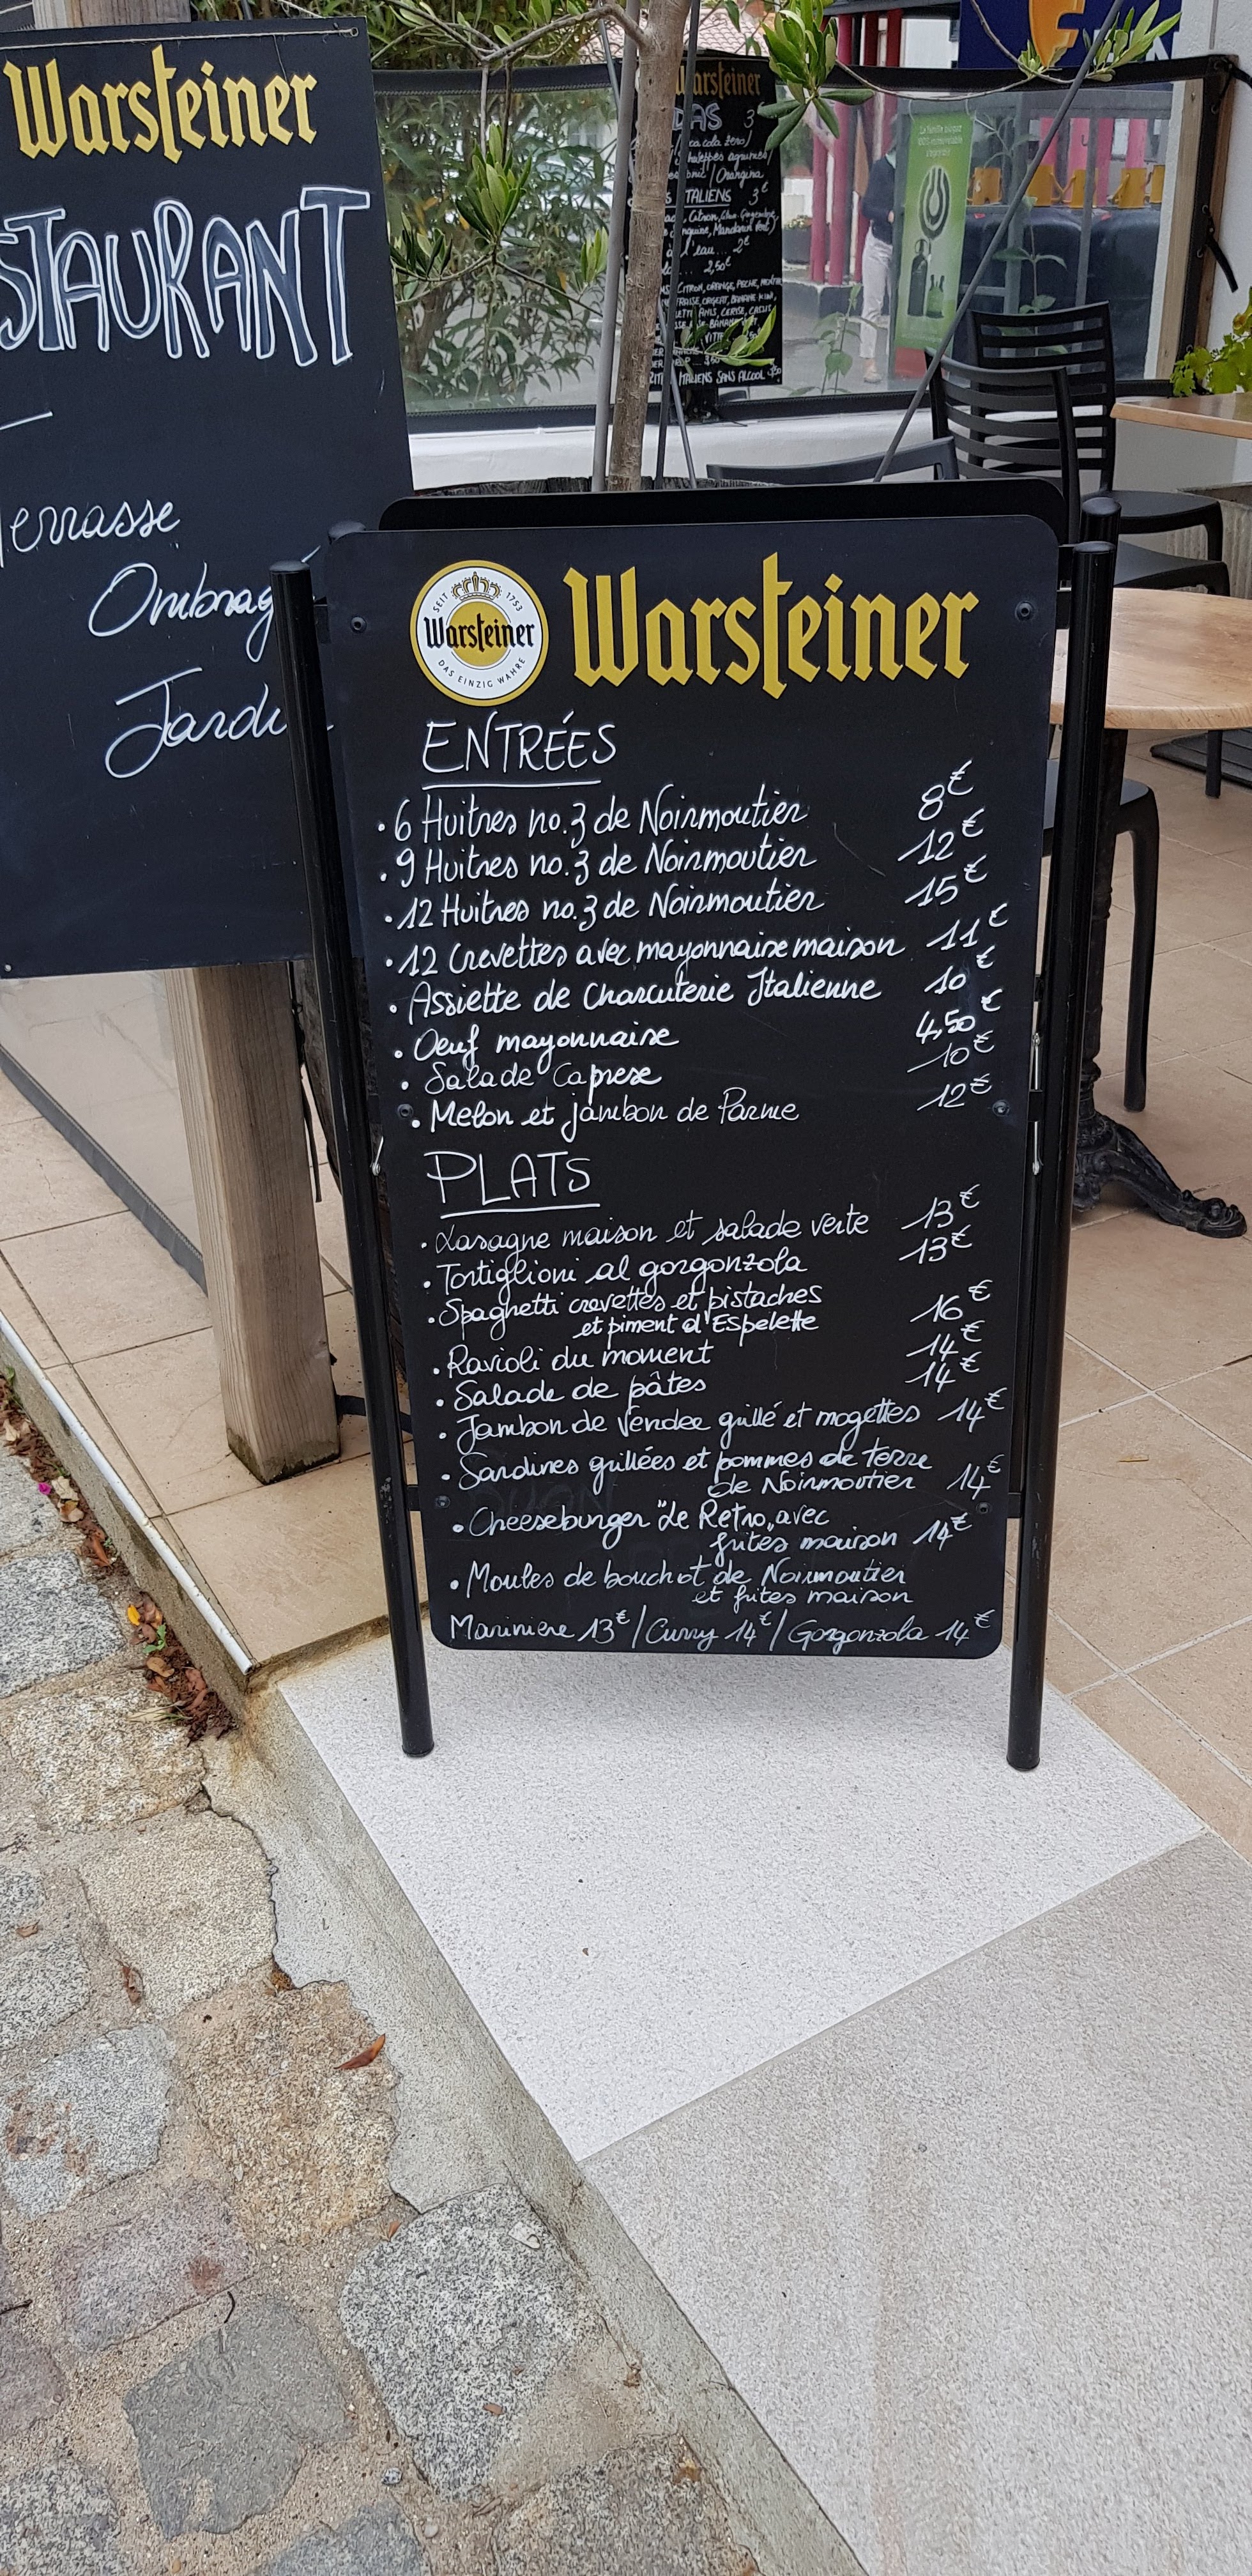 Warsteiner
STAURANT
Terrasse
Ombragé
Jardin
Warsteiner
DAS 3€
coca cola zero/
/ Orangina
ITALIENS 3€
l'eau... 2€
2,50€
CITRON, ORANGE, PECHE,
FRAISE, ORGEAT, BANANE KIWI,
ANIS, CERISE, CASSIS
ITALIENS SANS ALCOOL
La famille
100%
SEIT 1753
Warsteiner
DAS EINZIG WAHRE
Warsteiner
ENTRÉES
• 6 Huitres no.3 de Noirmoutier 8€
• 9 Huitres no.3 de Noirmoutier 12€
• 12 Huitres no.3 de Noirmoutier 15€
• 12 Crevettes avec mayonnaise maison 11€
• Assiette de Charcuterie Italienne 10€
• Oeuf mayonnaise 4,50€
• Salade Caprese 10€
• Melon et jambon de Parme 12€
PLATS
• Lasagne maison et salade verte 13€
• Tortiglioni al gorgonzola 13€
• Spaghetti crevettes et pistaches
et piment d'Espelette 16€
• Ravioli du moment 14€
• Salade de pâtes 14€
• Jambon de Vendee grillé et mogettes 14€
• Sardines grillées et pommes de terre
de Noirmoutier 14€
• Cheeseburger "Le Retro„ avec
frites maison 14€
• Moules de bouchot de Noirmoutier
et frites maison
Mariniere 13€ / Curry 14€ / Gorgonzola 14€